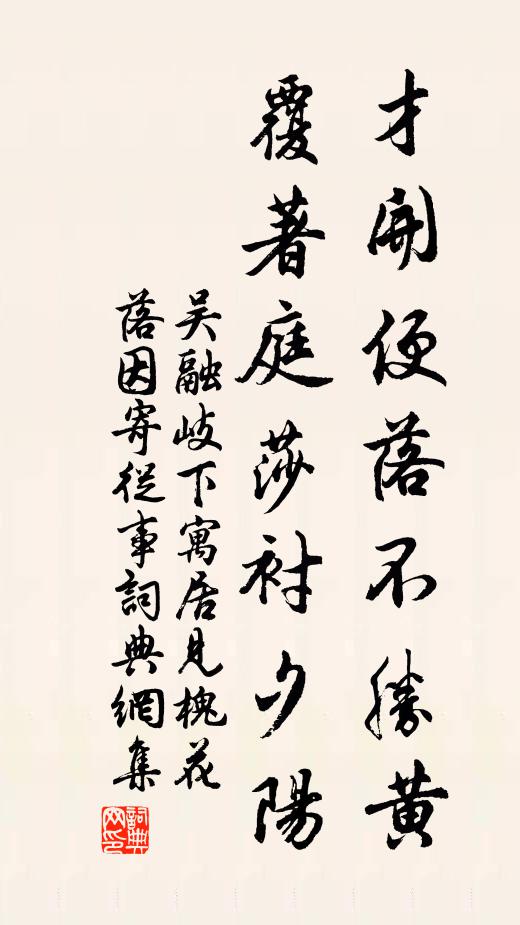 才開便落不勝黃
覆著庭莎衬夕陽
吴融岐下寓居見槐花
落因寄從事詞典網集
詞典網印